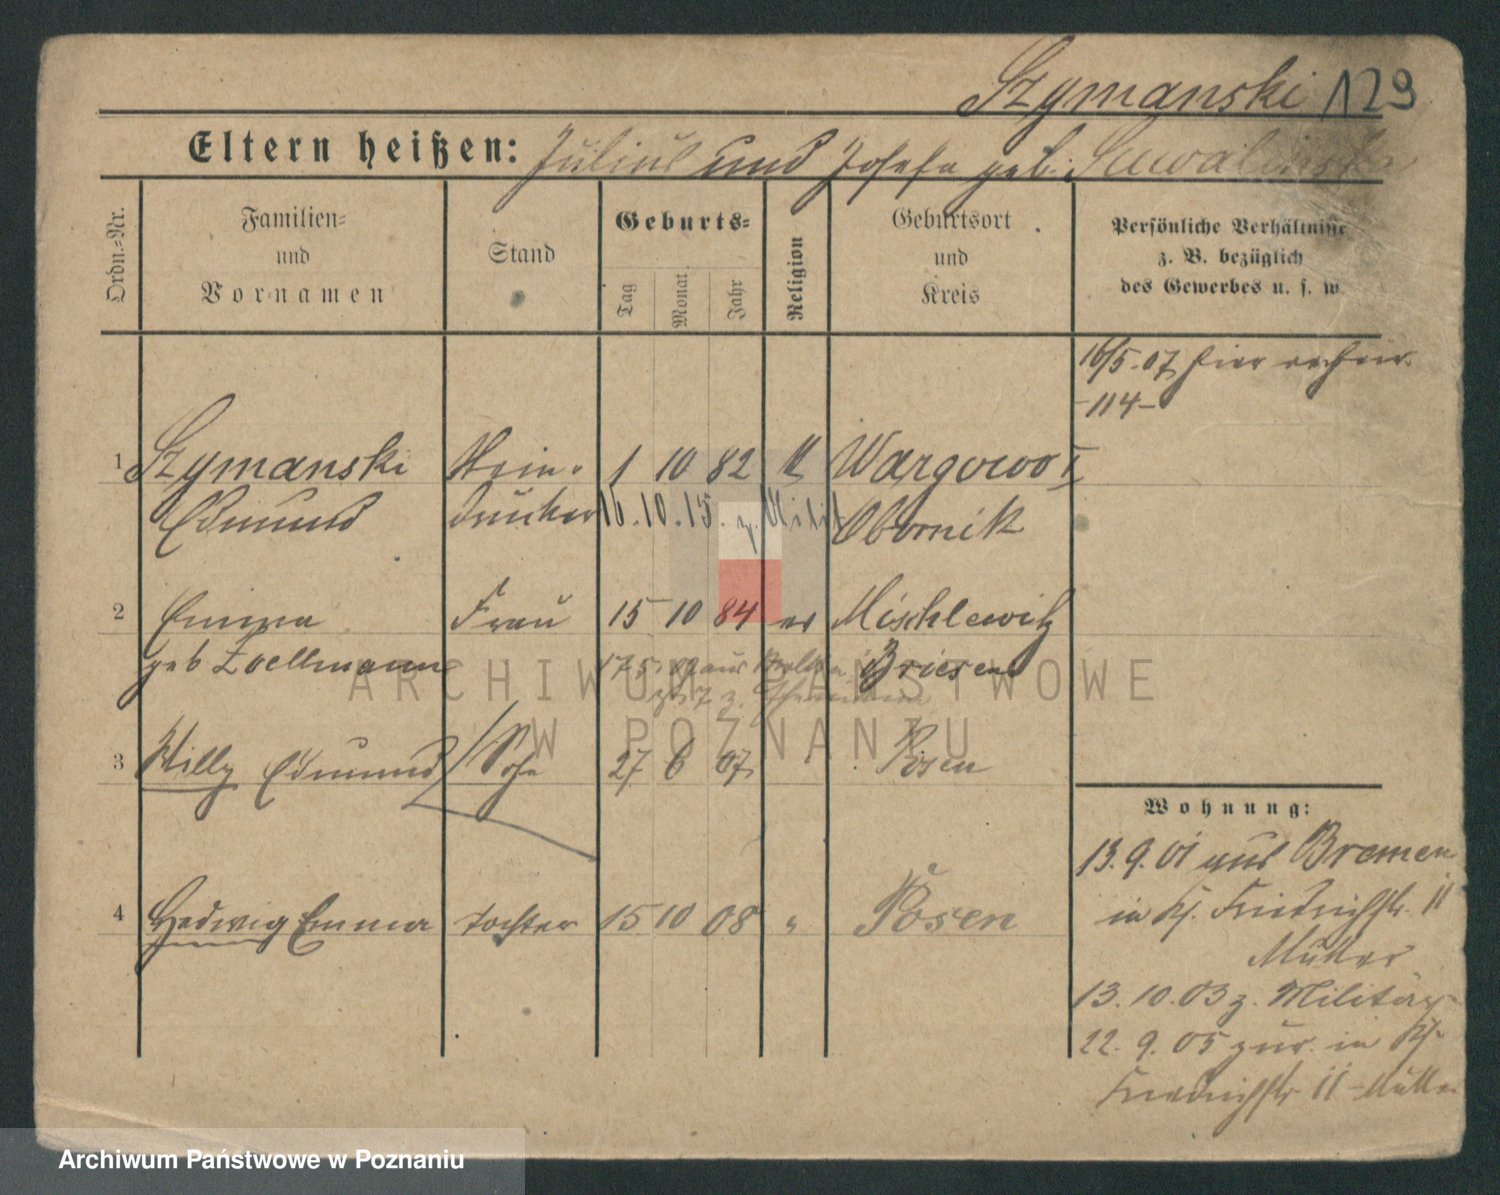 Szymanski 129
Eltern heißen: Julius und Josefa geb.
Ordn.=Nr.
Familien=
und
Vornamen
Stand
Geburts=
Tag
Monat
Jahr
Religion
Geburtsort
und
Kreis
Persönliche Verhältnisse
z. B. bezüglich
des Gewerbes u. s. w.
16/5.07 hier
-114-
1 Szymanski Stein- 1 10 82 Wargowo
Edmund drucker 16.10.15. z. Milit Obornik
2 Emma Frau 15 10 84 Mischlewitz
geb Zoellmann 17 5 07 aus Briesen
3 Willy Edmund Sohn 27 6 07 Posen
4 Hedwig Emma Tochter 15 10 08 " Posen
Wohnung:
13.9.01 aus Bremen
in Friedrichstr. 11
Mutter
13.10.03 z. Militär
22.9.05 zur. in
Friedrichstr 11 - Mutter
ARCHIWUM PAŃSTWOWE
W POZNANIU
Archiwum Państwowe w Poznaniu